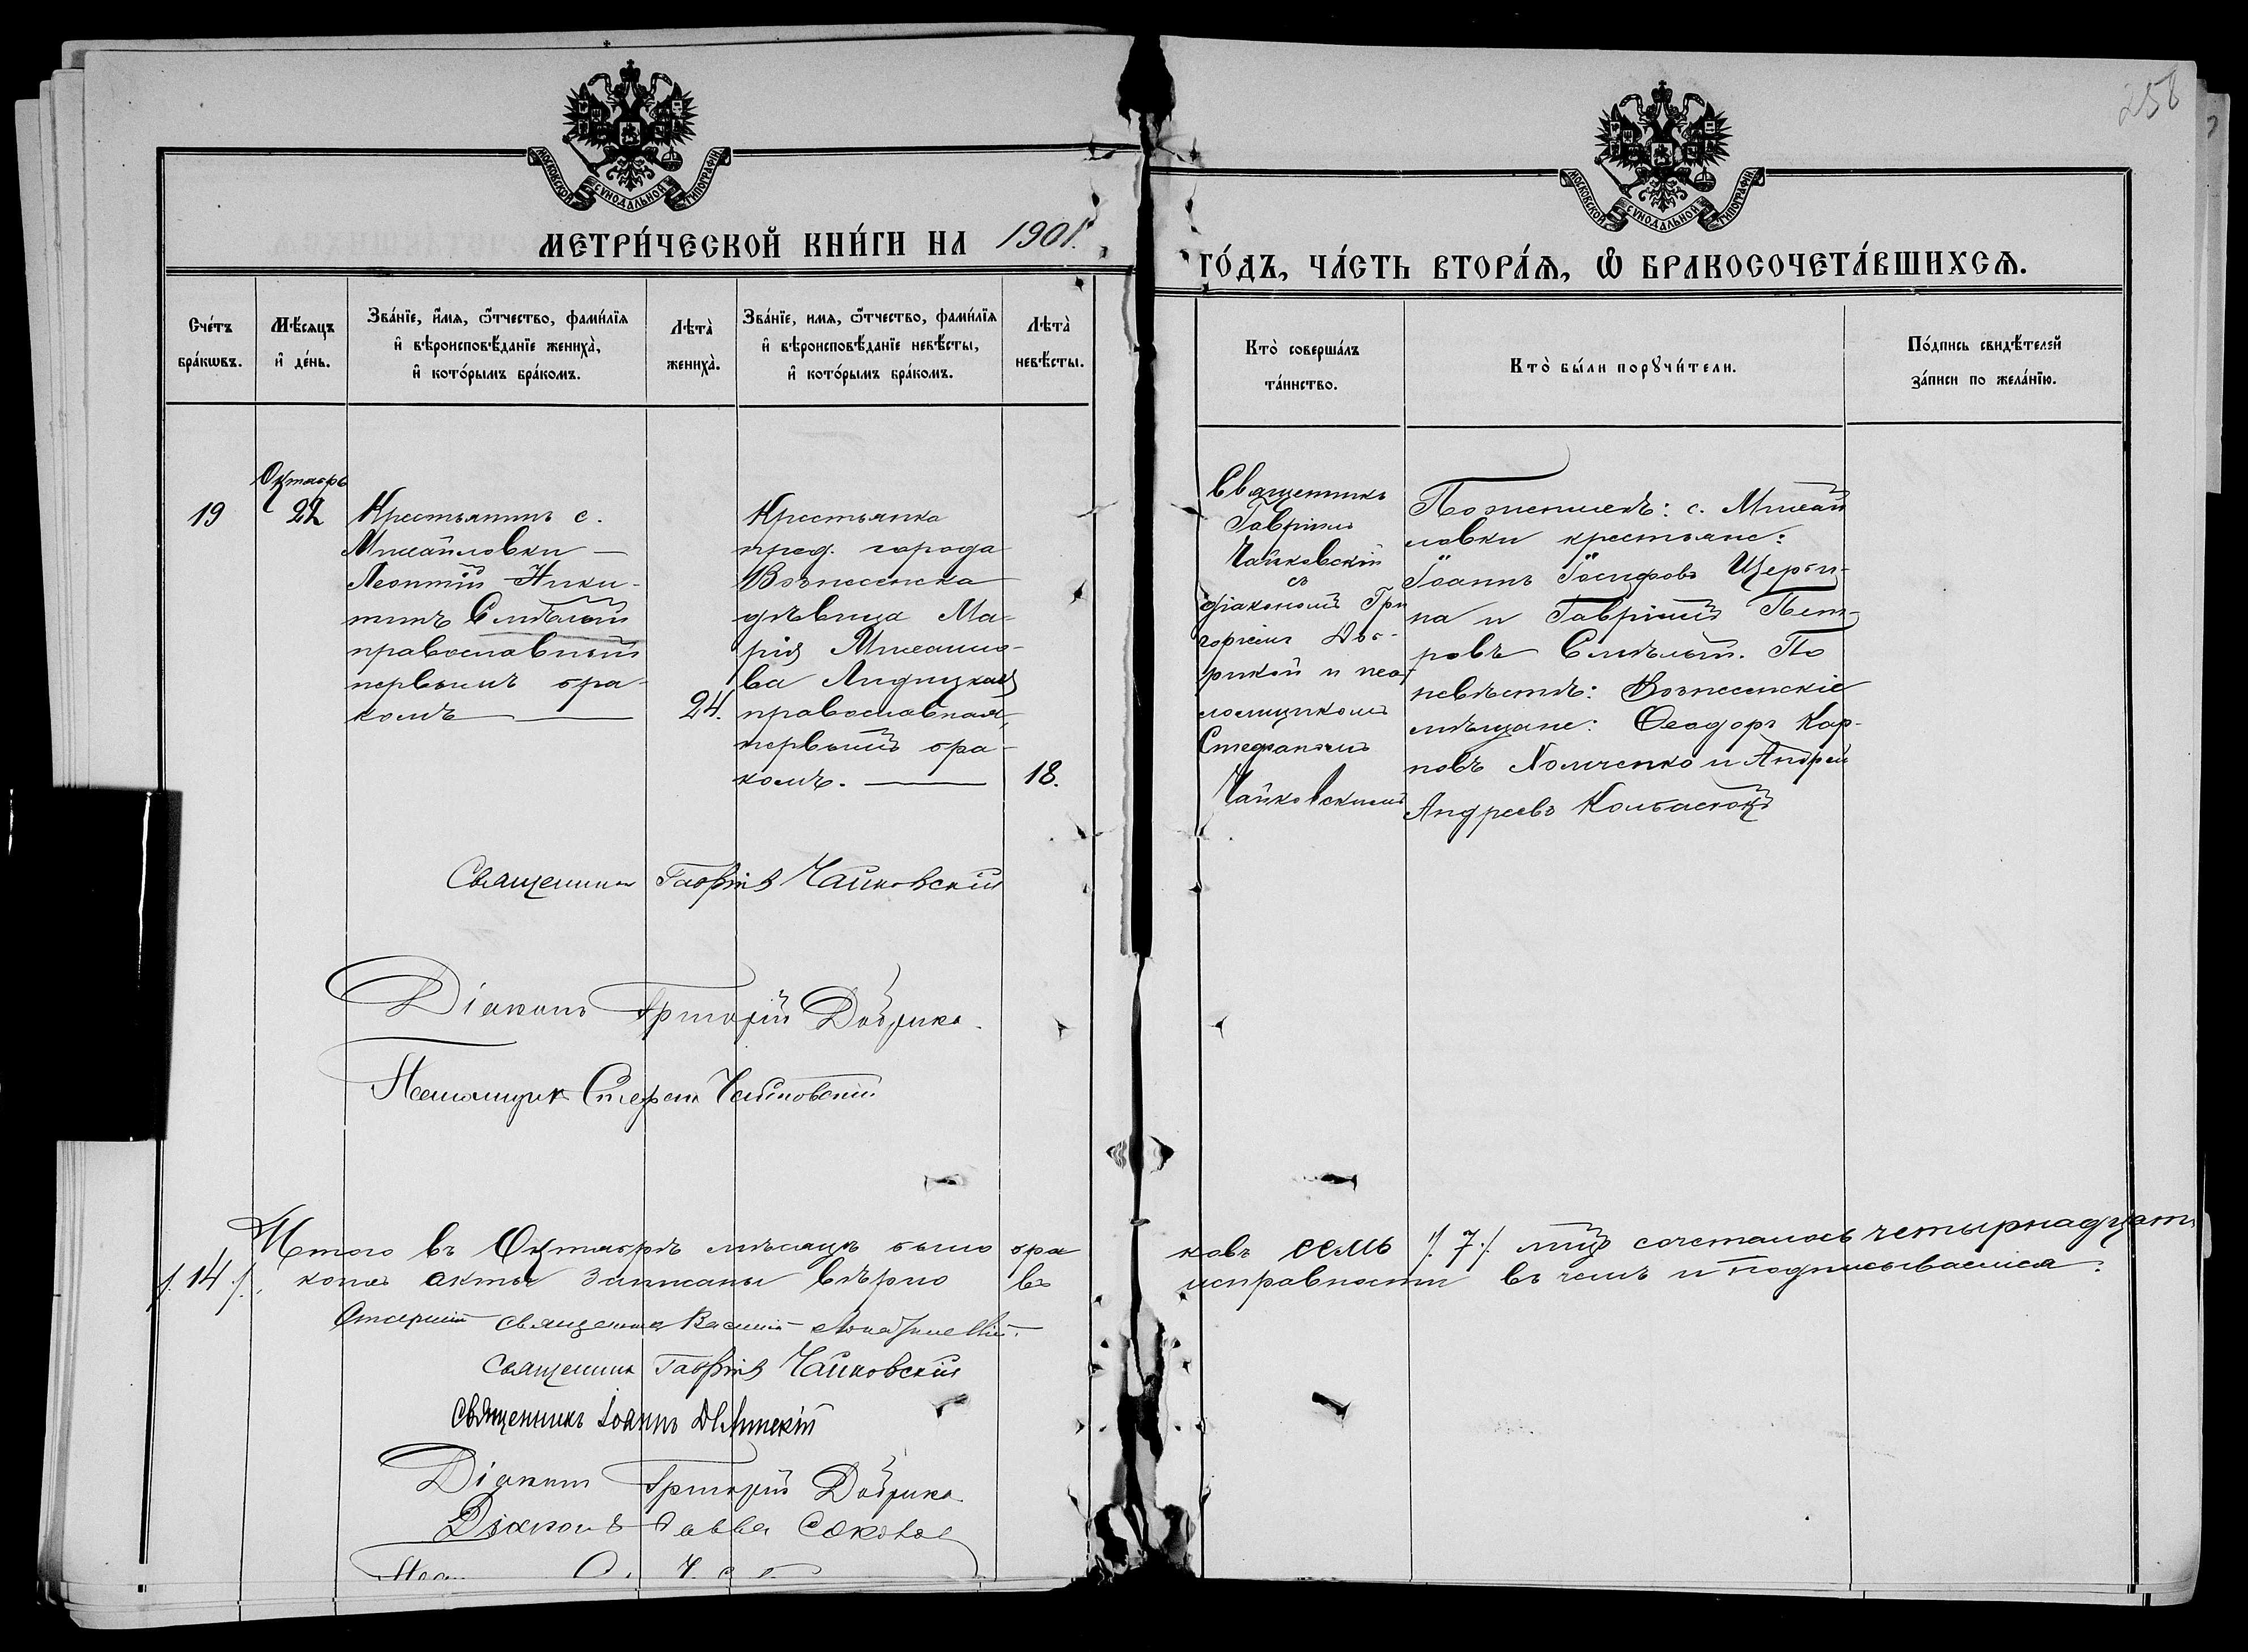 258
МОСКОВСКОЙ СУНОДАЛЬНОЙ ТИПОГРАФІИ
МОСКОВСКОЙ СУНОДАЛЬНОЙ ТИПОГРАФІИ
МЕТРИ́ЧЕСКОЙ КНИ́ГИ НА 1901.
ГО́ДЪ, ЧА́СТЬ ВТОРА́Ѧ, Ѽ БРАКОСОЧЕТА́ВШИХСѦ.
Сче́тъ
бра́кѡвъ.
Мѣ́сяцъ
и҆ де́нь.
Зва́нїе, и҆́мѧ, ѻ҆́тчество, фами́лїѧ
и҆ вѣроисповѣ́данїе жениха̀,
и҆ кото́рымъ бра́комъ.
Лѣта̀
жениха̀.
Зва́нїе, имѧ, ѻ҆́тчество, фами́лїѧ
и҆ вѣроисповѣ́данїе невѣ́сты,
и҆ кото́рымъ бра́комъ.
Лѣта̀
невѣ́сты.
Кто̀ соверша́лъ
та́инство.
Кто̀ бы́ли порꙋчи́тели.
По́дпись свидѣ́телей
за́писи по жела́нїю.
19
Октябрь
22
Крестьянинъ с.
Михайловки —
Леонтій Ники-
тинъ Смѣлый
православный
первымъ бра-
комъ —
24.
Крестьянка
пред. города
Вознесенска
дѣвица Ма-
рія Михаило-
ва
православная,
первымъ бра-
комъ. —
18.
Священникъ
Гавріилъ
Чайковскій
съ
діакономъ Гри
горіемъ Доб-
рикой и пса
ломщикомъ
Стефаномъ
Чайковскимъ
По женихѣ: с. Михай
ловки крестьяне:
Іоаннъ Іосифовъ Щерби-
на и Гавріилъ Пет-
ровъ Смѣлый. По
невѣстѣ: Вознесенскіе
мѣщане: Ѳеодоръ Кар-
повъ Хомченко и Андрей
Андреевъ Колбасюкъ
Священникъ Гавріилъ Чайковскій
Діаконъ Григорій Добрика.
Псаломщикъ Стефанъ Чайковскій
Итого въ Октябрѣ мѣсяцѣ было бра
ковъ семь /. 7 ./ лицъ сочеталось четырнадцать
/. 14 ./. копа акты записаны вѣрно въ
исправности въ чемъ и подписываемся:
Старшій священникъ Василій
Священникъ Гавріилъ Чайковскій
Священникъ Іоаннъ
Діаконъ Григорій Добрика
Діаконъ Савва Соколов